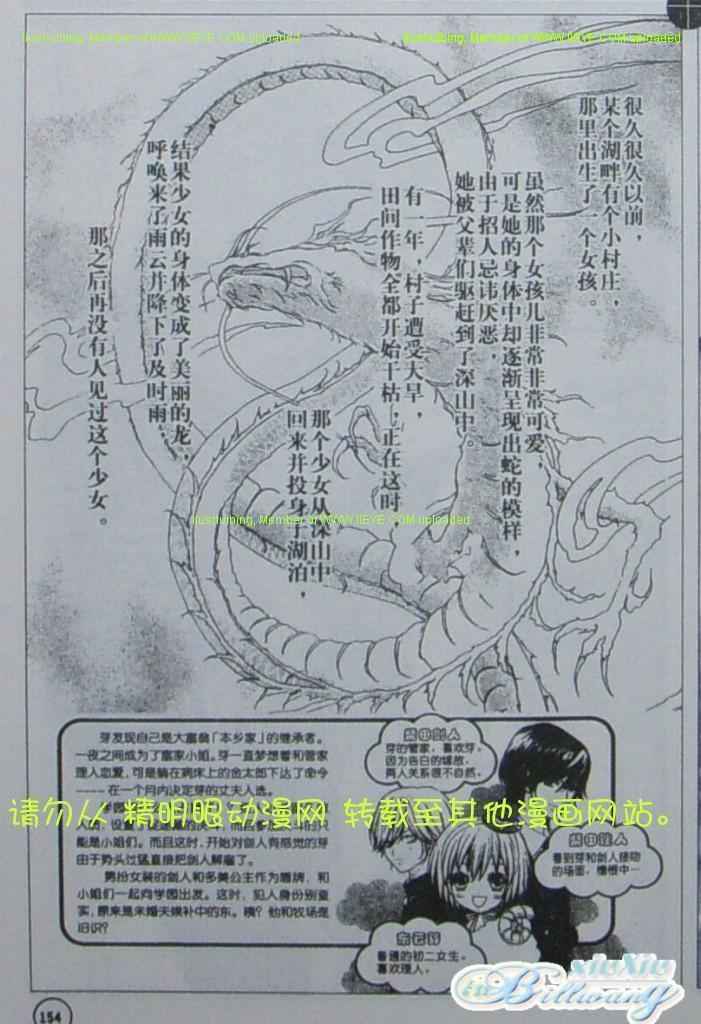 Illustruibing, Member of WWW.JIEYE.COM uploaded
Illustruibing, Member of WWW.JIEYE.COM uploaded
很久很久以前，
某个湖畔有个小村庄，
那里出生了一个女孩。
虽然那个女孩儿非常非常可爱，
可是她的身体中却逐渐呈现出蛇的模样，
由于招人忌讳厌恶，
她被父辈们驱赶到了深山中。
有一年，村子遭受大旱，
田间作物全都开始干枯，正在这时，
那个少女从深山中
回来并投身于湖泊，
结果少女的身体变成了美丽的龙，
呼唤来了雨云并降下了及时雨，
那之后再没有人见过这个少女。
Illustruibing, Member of WWW.JIEYE.COM uploaded
芽发现自己是大富翁「本乡家」的继承者。
一夜之间成为了富家小姐。芽一直梦想着和管家
理人恋爱，可是躺在病床上的金太郎下达了命令
-----在一个月内决定芽的丈夫人选。
能是小姐们。而且这时，开始对剑人有感觉的芽
由于势头过猛直接把剑人解雇了。
男扮女装的剑人和多美公主作为盾牌，和
小姐们一起向学园出发。这时，犯人身份别重
实，原来是未婚夫候补中的东。咦？他和牧场是
旧识？
柴田剑人
芽的管家，喜欢芽。
因为告白的缘故，
两人关系很不自然。
柴田理人
看到芽和剑人接吻
的场面，懵懂中…
东云芽
普通的初二女生。
喜欢理人。
请勿从 精明眼动漫网 转载至其他漫画网站。
xieXie
Billwang
154